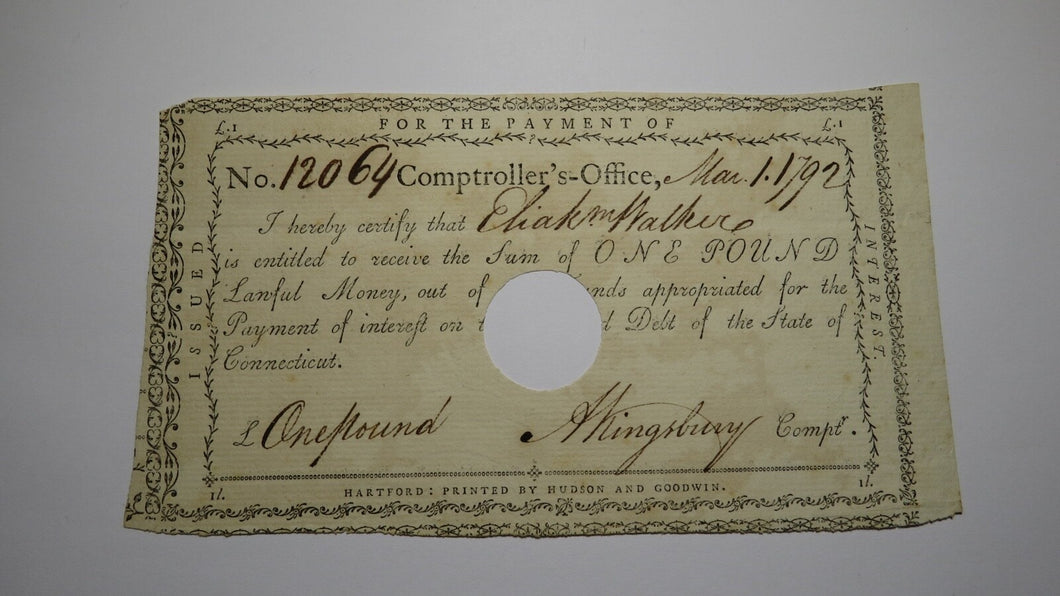 FOR THE PAYMENT OF
£.1 £.1
No. 12064 Comptroller's-Office, Mar. 1. 1792
I hereby certify that Eliakm Walker
is entitled to receive the Sum of ONE POUND
Lawful Money, out of unds appropriated for the
Payment of interest on t d Debt of the State of
Connecticut.
£ One pound A Kingsbury Comptr.
1l. 1l.
HARTFORD: PRINTED BY HUDSON AND GOODWIN.
ISSUED
INTEREST.